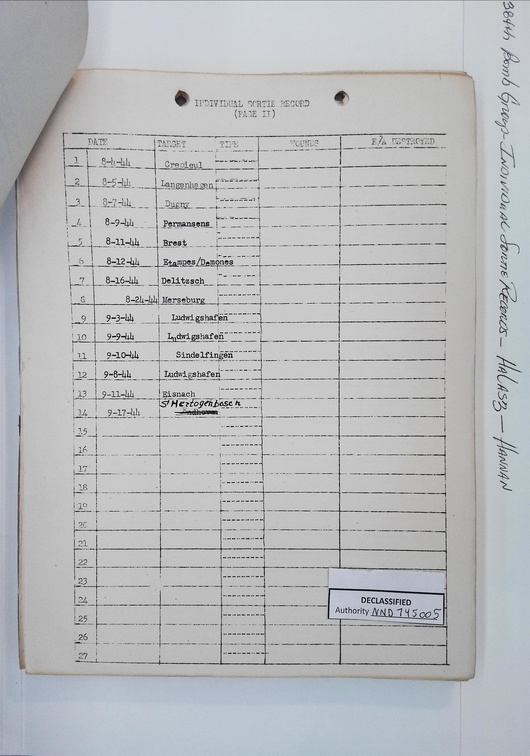 INDIVIDUAL SORTIE RECORD
(PAGE II)
DATE TARGET TIME WOUNDS E/A DESTROYED
1 8-4-44
2 8-5-44 Langenhagen
3 8-7-44 Dugny
4 8-9-44 Permansens
5 8-11-44 Brest
6 8-12-44 Etampes/Demones
7 8-16-44 Delitzsch
8 8-24-44 Merseburg
9 9-3-44 Ludwigshafen
10 9-9-44 Ludwigshafen
11 9-10-44 Sindelfingen
12 9-8-44 Ludwigshafen
13 9-11-44 Eisnach
St Hertogenbosch
14 9-17-44
15
16
17
18
19
20
21
22
23
24
25
26
27
DECLASSIFIED
Authority NND 745005
384th Bomb Group - Individual Sortie Records - HALASZ - HANNAN